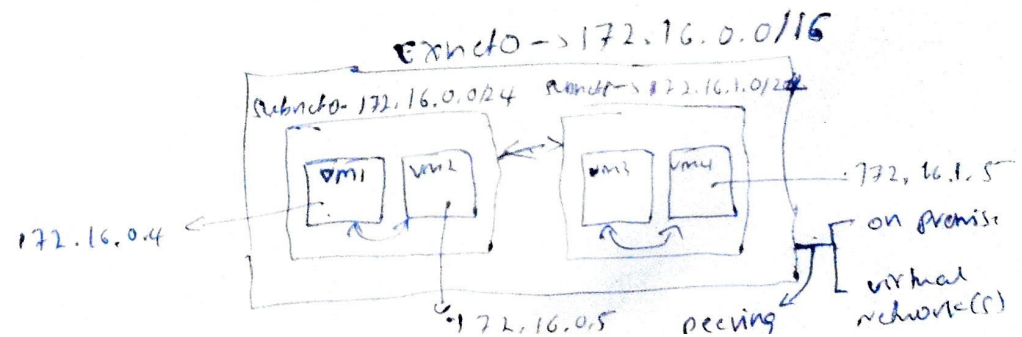 EXncto -> 172.16.0.0/16
subncto- 172.16.0.0/24
172.16.1.0/24
vm1
vm2
vm3
vm4
172.16.1.5
172.16.0.4
172.16.0.5
on premise
virtual
network(s)
peering